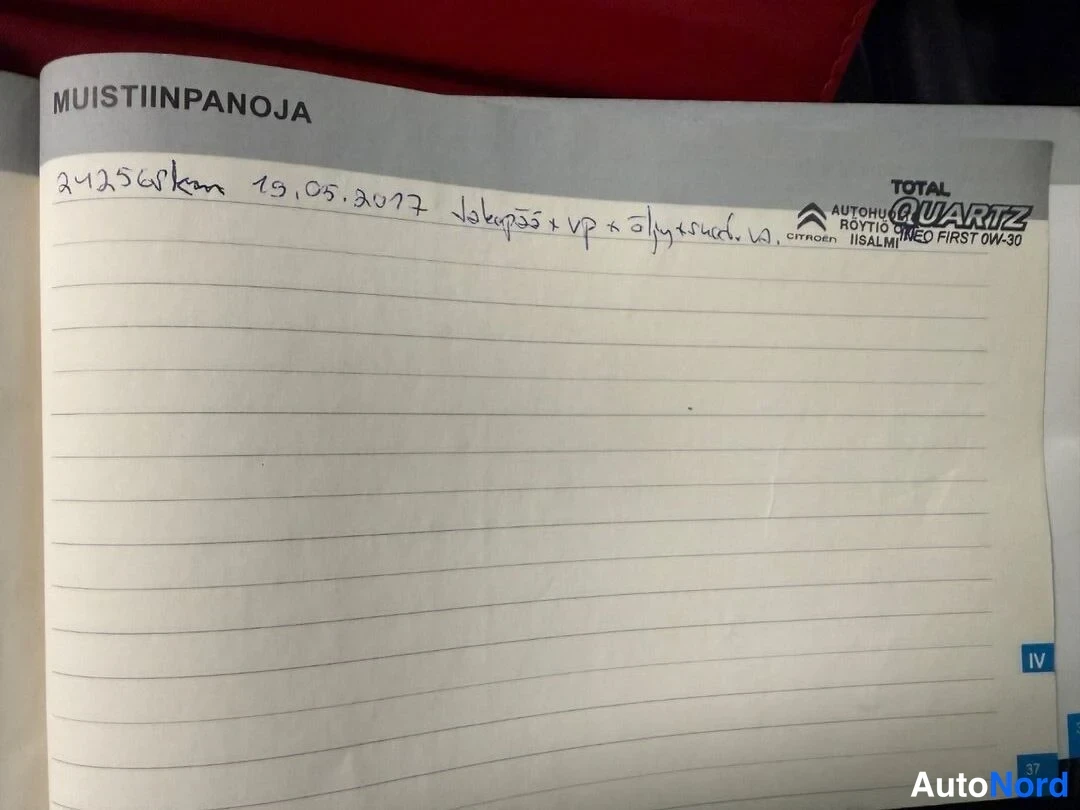 MUISTIINPANOJA
242568km 19.05.2017 Jakopää + vp + öljy + suod. va.
TOTAL
QUARTZ
INEO FIRST 0W-30
CITROËN
AUTOHUO
RÖYTIÖ O
IISALMI
IV
37
AutoNord